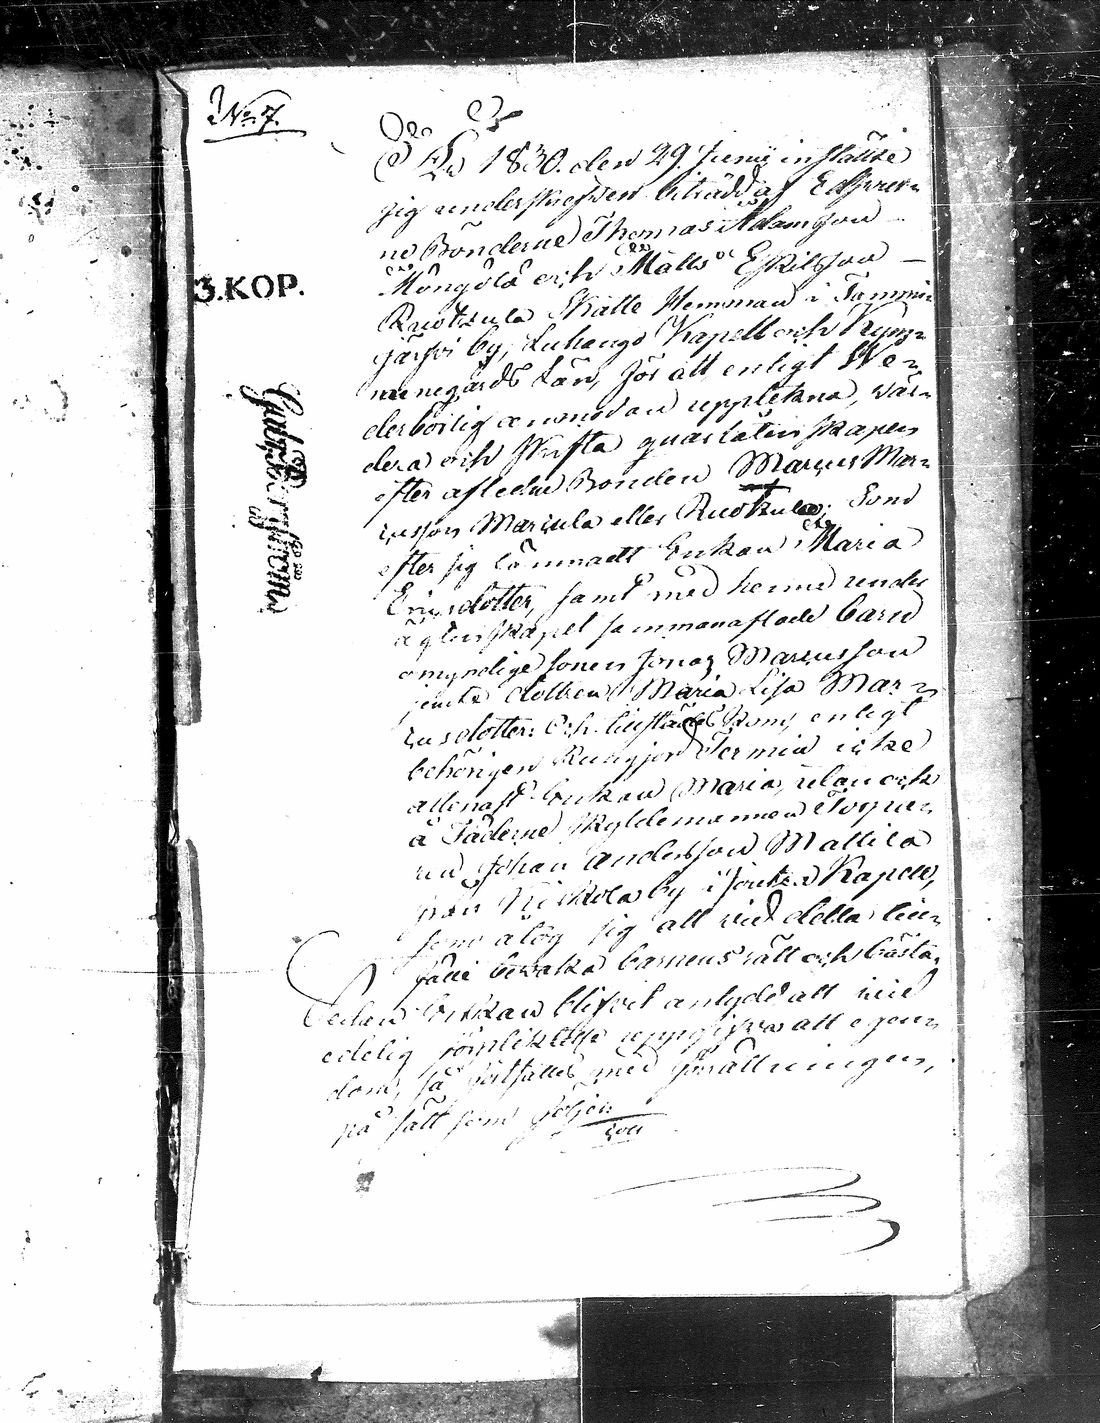 No 7.
År 1830. den 29 Junii instälte
sig underskrefven biträdd af Edsvurn-
ne Bönderne Thomas Adamsson
Mängölä och Matts Eskilsson
Ruotsula Skatte Hemman i Tammi-
järfvi by, Luhango Kapell och Kym-
menegårds Län, för att enligt We-
derbörlig anmodan uppteckna, vär-
dera och skifta quarlåtenskapen
efter afledne Bonden Marcus Mar-
cusson Marcula eller Ruotsula; Som
efter sig lämnadt Enkan Maria
Ericsdotter, samt med henne under
ägtenskapet sammanaflade barn
omyndige sonen Jonas Marcusson
jemte dottren Maria Lisa Mar-
cusdotter: Och tillstädes kom, enligt
behörigen kungjord Termin icke
allenast Enkan Maria, utan ock
å Fäderne skyldemannen
Johan Andersson Mattila
från by i Joutsa Kapell,
som åtog sig att vid detta till-
fälle bevaka barnens rätt och bästa.
Sedan Enkan blifvit antydd att vid
edelig förpliktelse uppgifva all egen-
dom, så fortsattes med förrättningen,
på sätt som följer
3.KOP.